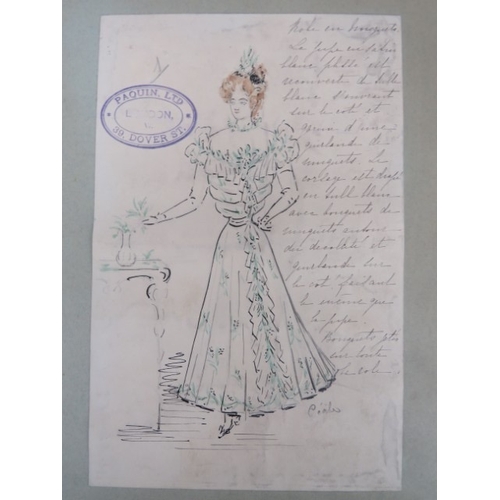 PAQUIN, LTD
LONDON,
39, DOVER ST.
Robe en
La jupe en satin
blanc plissé est
recouvert de tulle
blanc s'ouvrant
sur le coté et
d'une
guirlande de
muguets. Le
corsage est drapé
en tulle blanc
avec bouquets de
muguets autour
du decolleté et
Guirlande sur
le coté faisant
le même que
la jupe.
Bouquets
sur toute